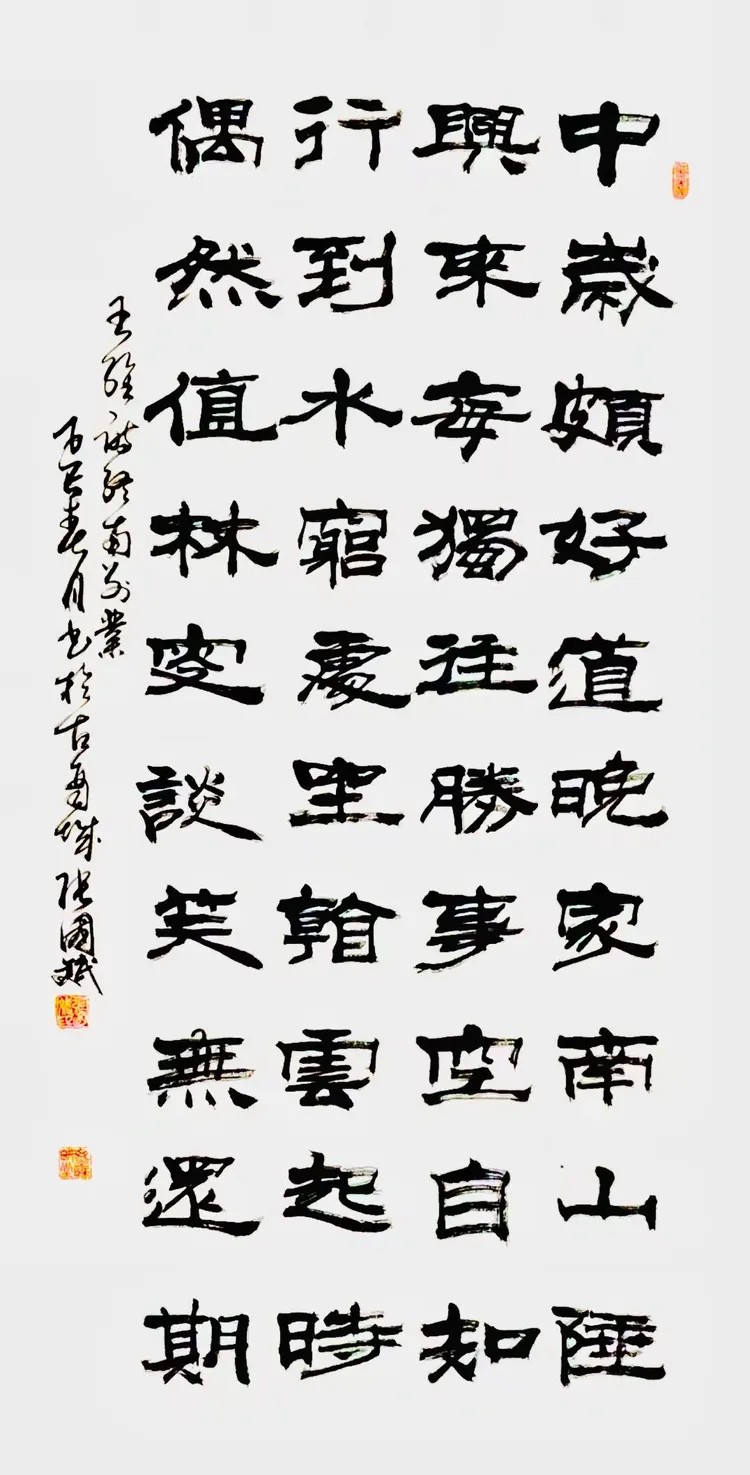 中歲頗好道晚家南山陲
興來每獨往勝事空自知
行到水窮處坐看雲起時
偶然值林叟談笑無還期
王維詩終南別業
乙巳春月書於古城張國斌